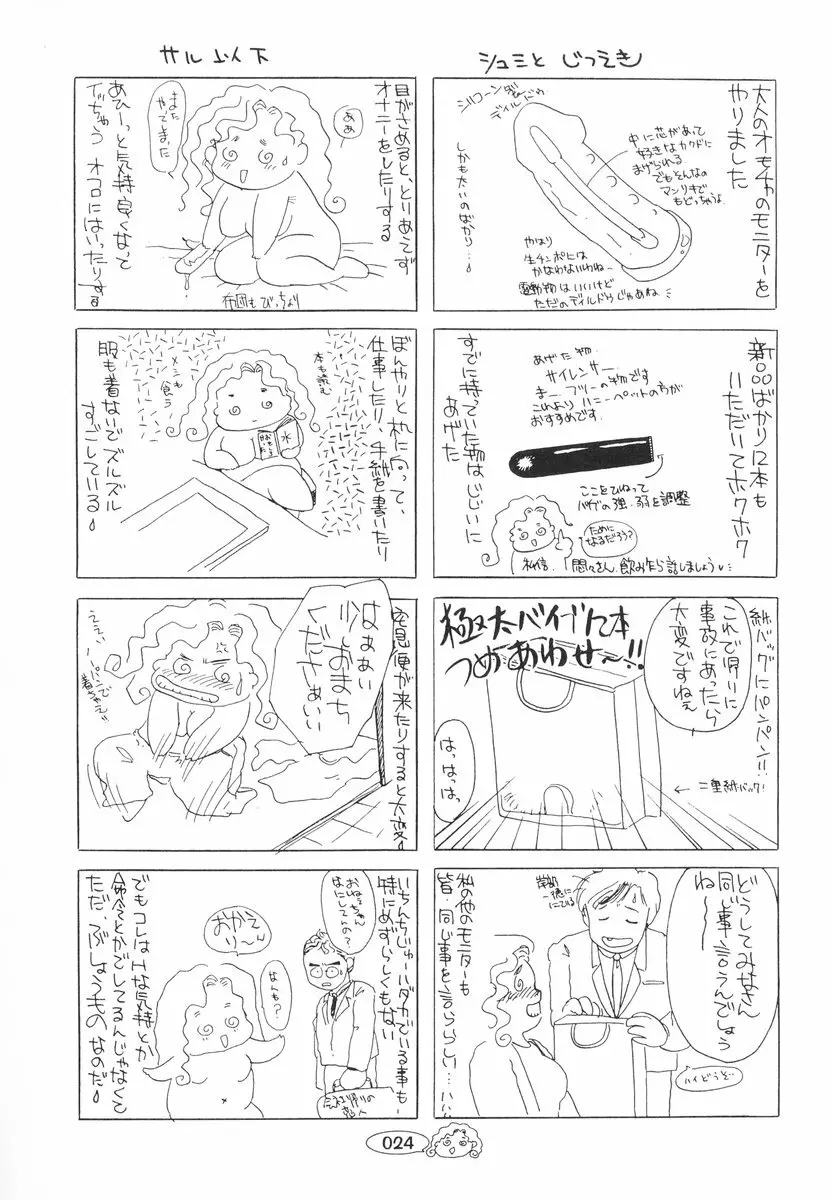 シュミと じつえき
大人のオモチャのモニターを
やりました
シリコーンゴムの
ディルドゥ
中に芯があって
好きなカクドに
まげられる
でもそんなの
マンリキで
もどっちゃうよ
しかも太いのばかり…
やはり
生チンポには
かなわないわね〜
電動物はいいけど
ただのディルドゥじゃあね
新品ばかり12本も
いただいてホクホク
すでに持っていた物はじじいに
あげた
あげた物.
サイレンサー.
まー、ブルーの物です
これより ハニーペットの方が
おすすめです.
ここをひねって
バイブの強.弱を調整
ために
なるだろう?
私信.「悶々さん、飲み乍ら話しましょう
紙バッグにパンパン!!
これで帰りに
事故にあったら
大変ですねぇ
極太バイブ12本
つめあわせ〜!!
はっはっは
←二重紙バック!
どうしてみなさん
同じ事言うんでしょう
ね〜
にている
私の他のモニターも
皆、同じ事を言うらしい…ハハハ
ハイどうぞ
サル以下
目がさめると、とりあえず
オナニーをしたりする
ああ
また
やってしまった
あひーっと気持良くなって
イッちゃう オフロにはいったりする
布団もびっちょり
ぼんやりと机に向って、
仕事したり 手紙を書いたり
本も読む
メシも
食う
服も着ないでズルズル
すごしている
宅急便が来たりすると大変
はぁぁい
少しおまち
くださぁいい
ええい
パンツまで
いちんちじゅーハダカでいる事も
特にめずらしくもない
おねえちゃん
なにしてんの?
おかえ
り〜
なんも?
会社帰りの
恋人
でもコレはHな気持とか
命令とかでしてるんじゃなくて
ただ、ぶしょうもの なのだ
024